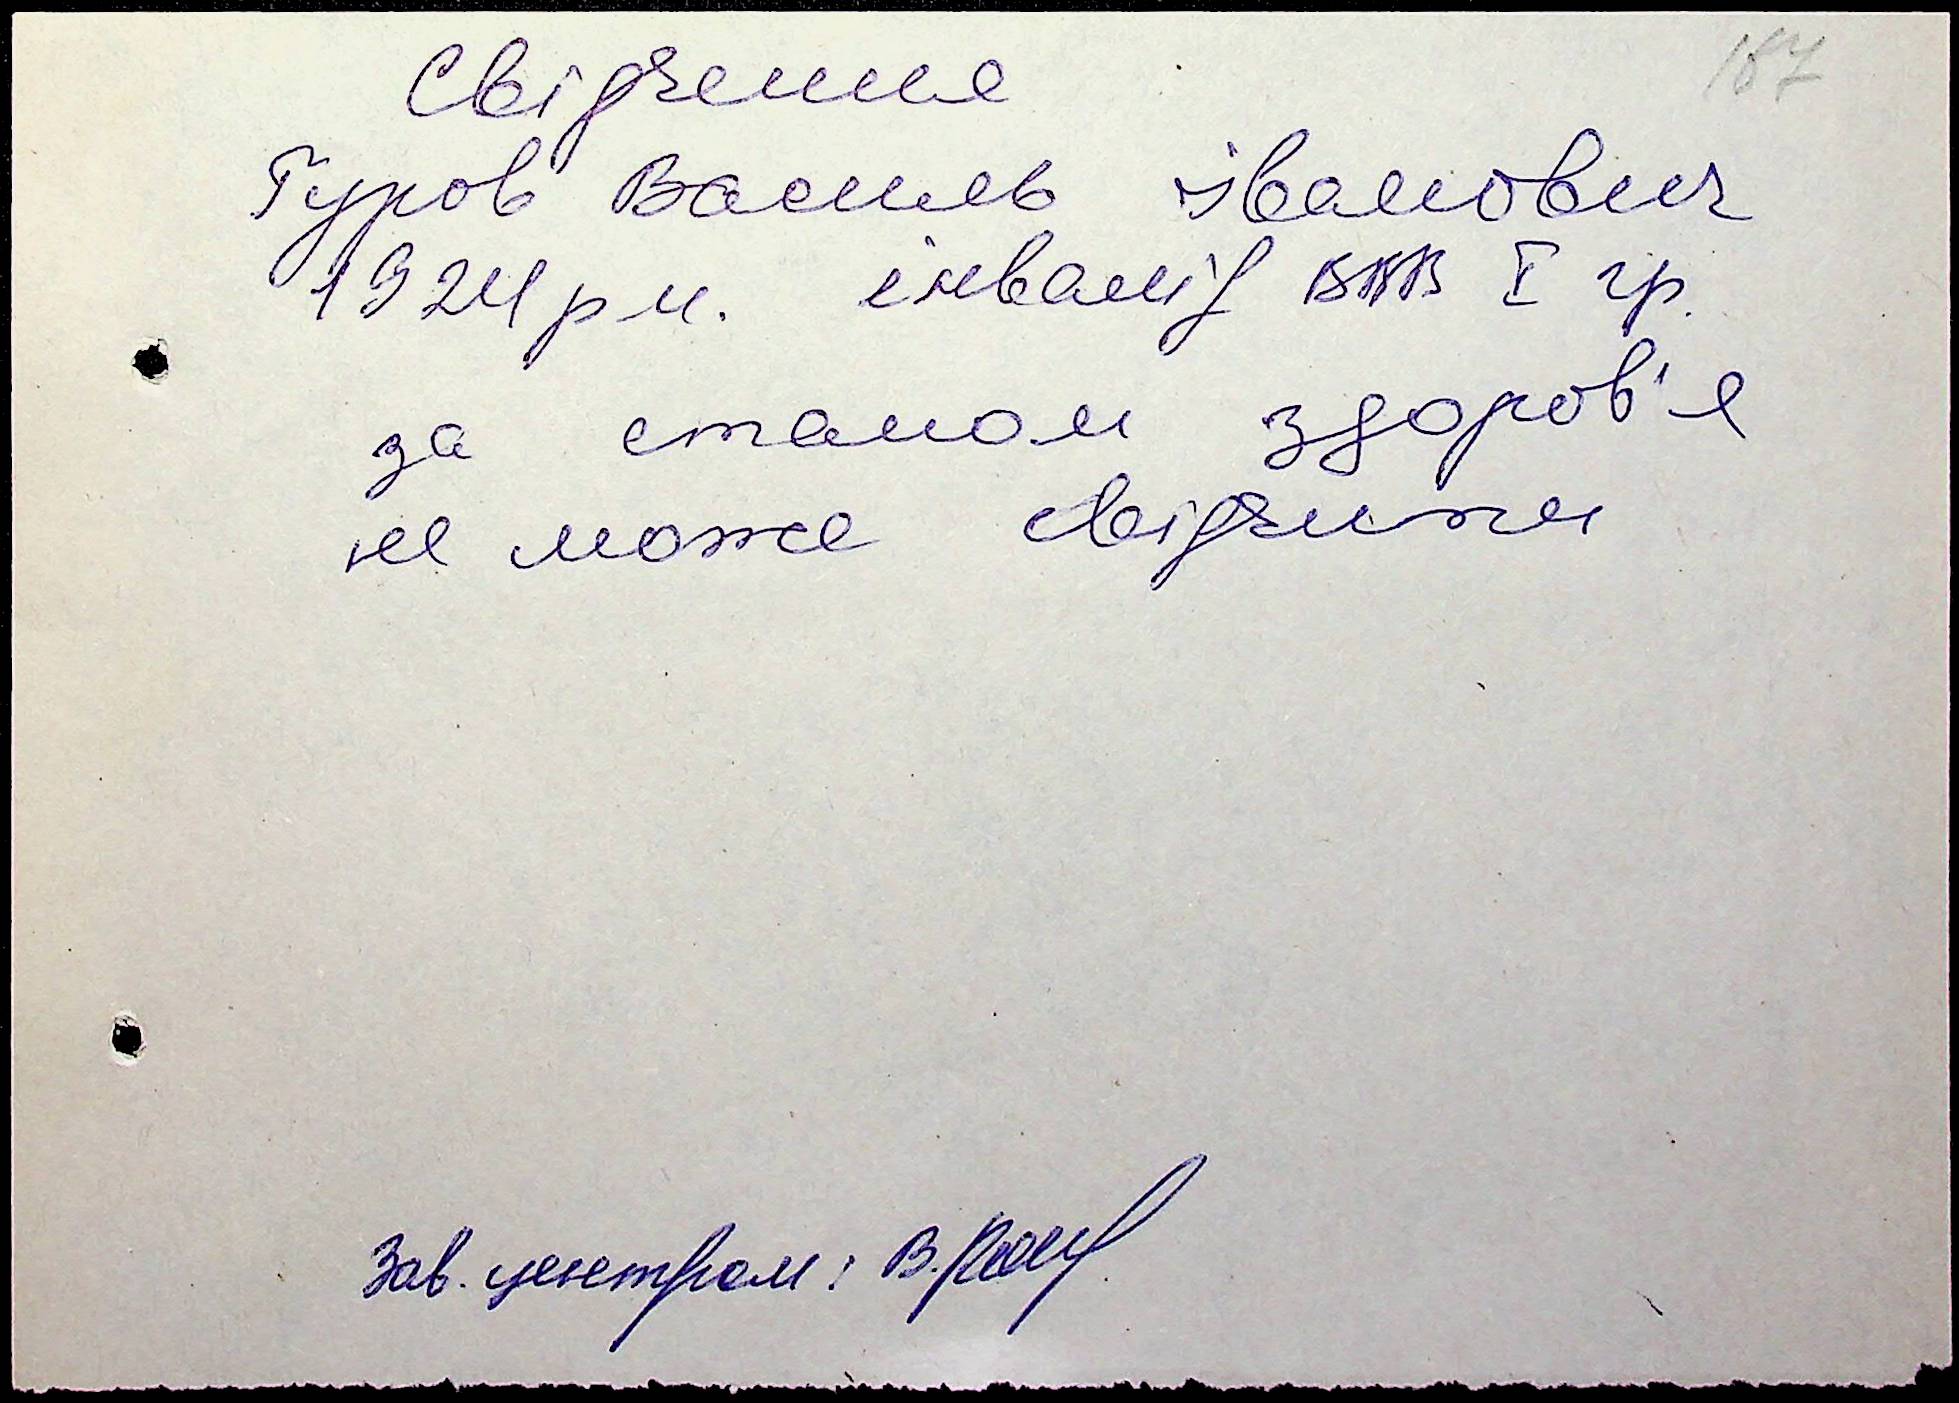 187
Свідчення
Гуров Василь Іванович
1924 р н. інвалід ВВВ I гр.
за станом здоров'я
не може свідчити
Зав. центром: В.